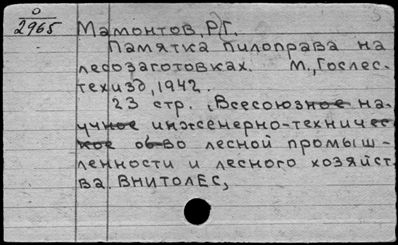 0
2965
Мамонтов, Р.Г.
Памятка пилоправа на
лесозаготовках. М., Гослес-
техизд, 1942.
23 стр. (Всесоюзное на-
учное инженерно-техничес-
кое об-во лесной промыш-
ленности и лесного хозяйст
ва. ВНИТОЛЕС,